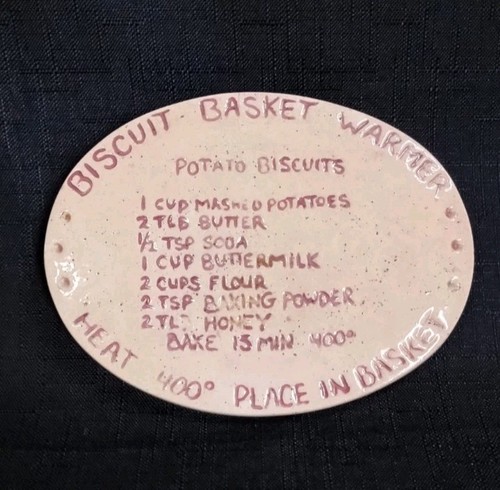 BISCUIT BASKET WARMER
POTATO BISCUITS
1 CUP MASHED POTATOES
2 TLB BUTTER
1/2 TSP SODA
1 CUP BUTTERMILK
2 CUPS FLOUR
2 TSP BAKING POWDER
2 HONEY
BAKE 15 MIN 400°
HEAT 400° PLACE IN BASKET